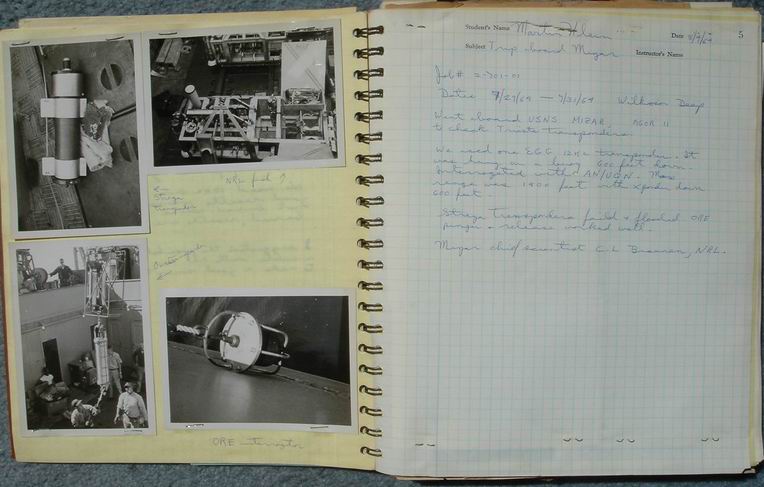 NRL fish ?
ORE interrogator
Student's Name Martin Klein
Date 8/7/64
5
Subject Trip aboard Mizar
Instructor's Name
Job # 2-701-01
Dates 7/27/64 — 7/31/64 Wilkson Deep
Went aboard USNS MIZAR AGOR 11
to check Trieste transponders.
We used one EGG 12KC transponder. It
was hung on a long 600 feet down.
Interrogated with AN/UQN. Max
range was 1900 feet with xponder down
600 feet.
Straza Transponders failed & flooded ORE
pinger & release worked well.
Mizar chief scientist C.L. Buchanan, NRL.